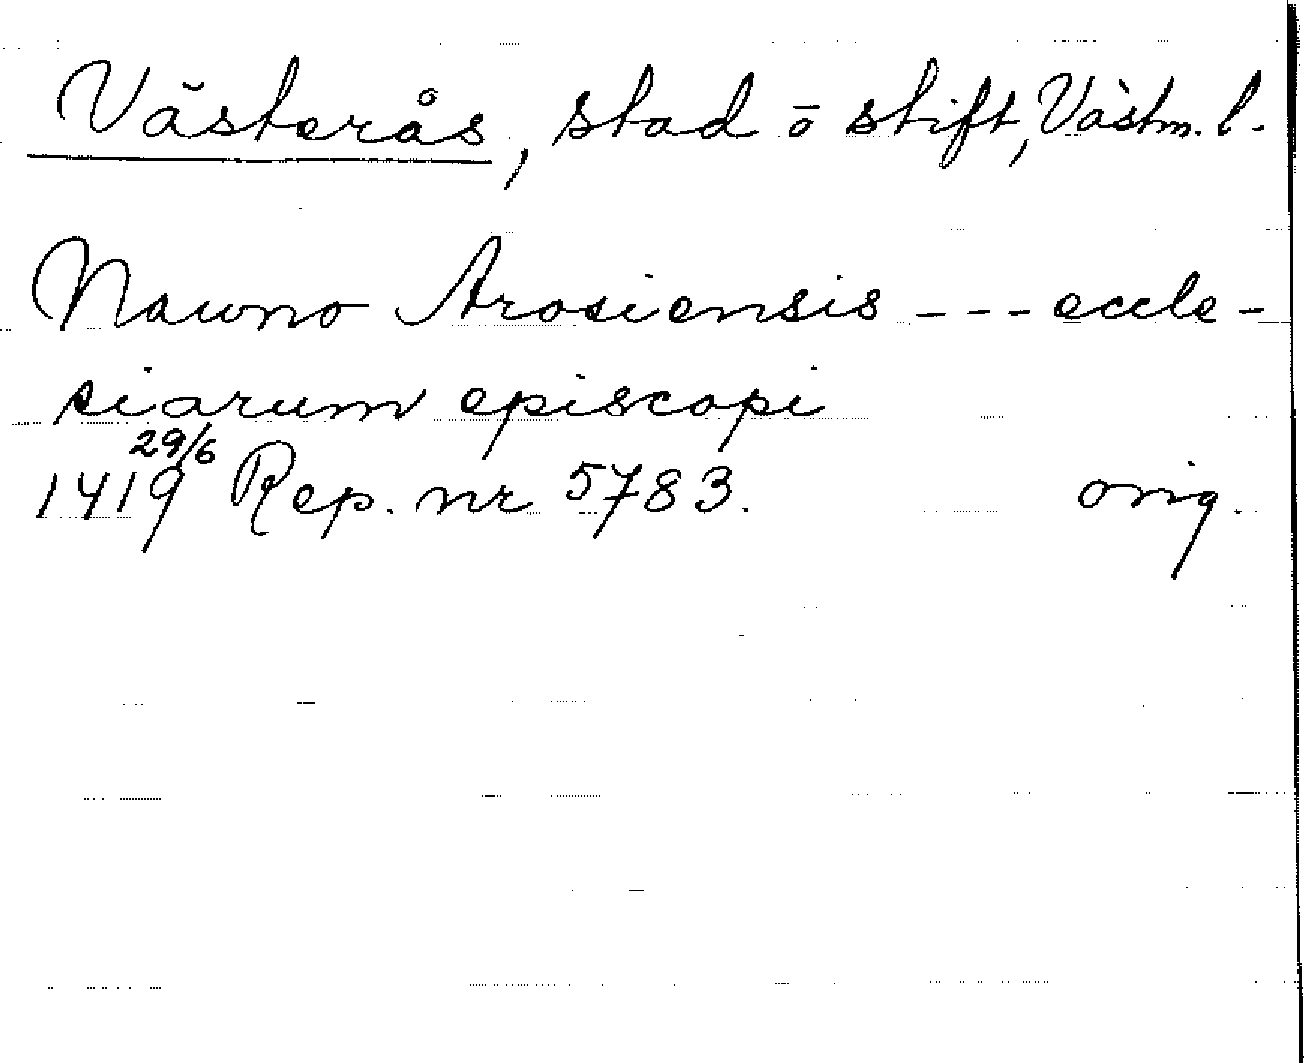 Västerås, stad o stift, Västm. l.
Nawno Arosiensis --- eccle-
siarum episcopi
29/6
1419 Rep. nr 5783. orig.